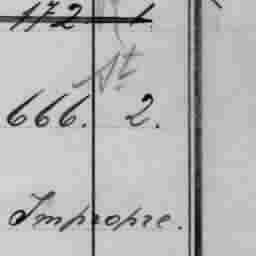 172 1.
St
666. 2.
Impropre.